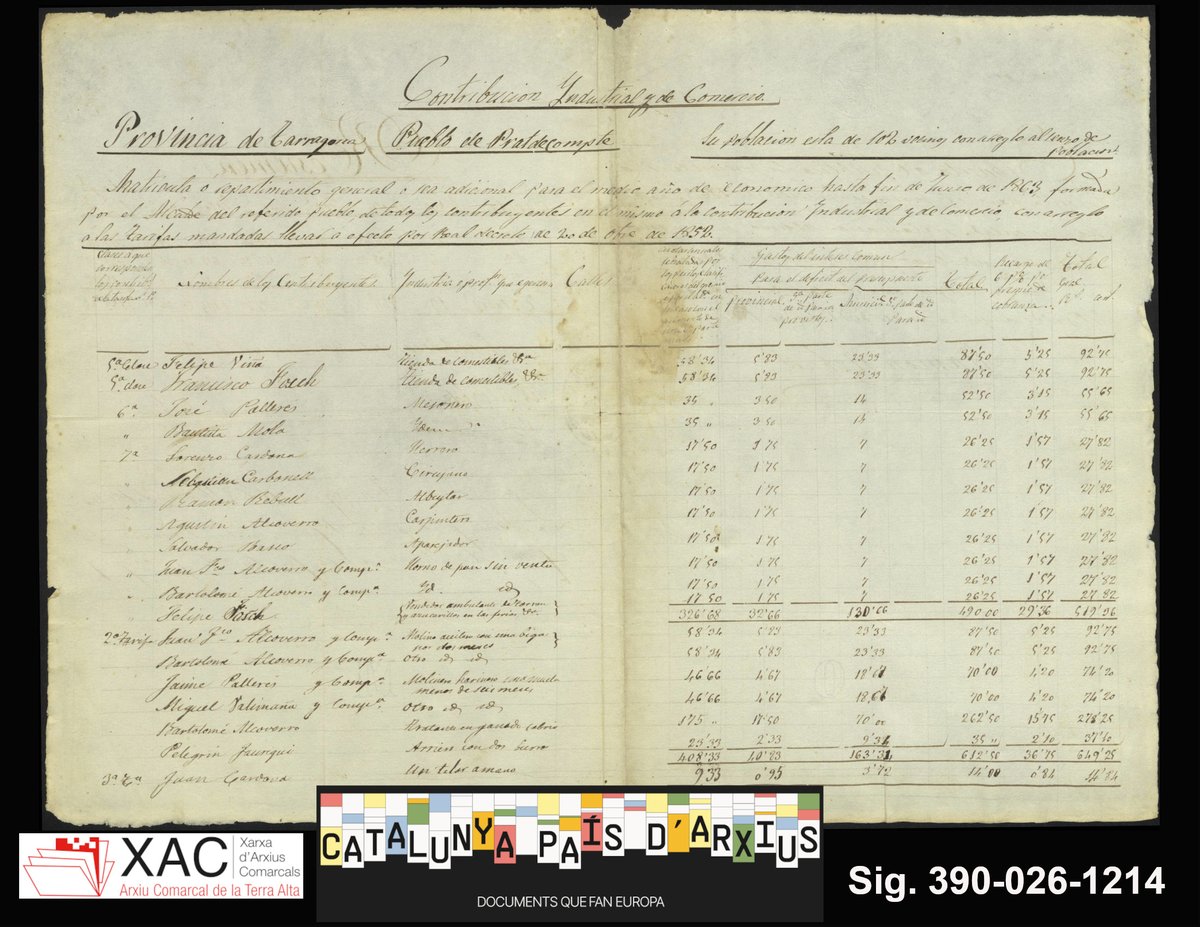 Contribucion Industrial y de Comercio.
Provincia de Tarragona Pueblo de Pratdecompte Su poblacion esta de 102 vecinos con arreglo al censo de poblacion
Matricula o repartimiento general o sea adicional para el medio año de economico hasta fin de Junio de 1863 formada
por el Alcalde del referido pueblo de todos los contribuyentes en el mismo á la contribucion Industrial y de Comercio, con arreglo
a las Tarifas mandadas llevar a efecto por Real decreto de 20 de Obre de 1852.
Nombres de los Contribuyentes Industria o profon que ejercen Calles
Gastos de interes comun
Para el deficit del presupuesto Total Recargo de 6 p% por premio de cobranza Total Gral
Provincial
5ª Clase Felipe Viñá Tienda de comestibles &ª 58'34 5'83 23'33 87'50 5'25 92'75
5ª clase Francisco Fosch Tienda de comestibles &ª 58'34 5'83 23'33 87'50 5'25 92'75
6ª José Pallerés Mesonero 35 " 3'50 14 52'50 3'15 55'65
" Bautista Mola Idem 35 " 3'50 14 52'50 3'15 55'65
7ª Lorenzo Cardona Herrero 17'50 1'75 7 26'25 1'57 27'82
" Carbonell Cirujano 17'50 1'75 7 26'25 1'57 27'82
" Ramon Albeytar 17'50 1'75 7 26'25 1'57 27'82
" Agustin Alcoverro Carpintero 17'50 1'75 7 26'25 1'57 27'82
" Salvador Aparejador 17'50 1'75 7 26'25 1'57 27'82
" Juan Fco Alcoverro y Compª Horno de pan sin venta 17'50 1'75 7 26'25 1'57 27'82
" Bartolomé Alcoverro y Compª Id. id 17'50 1'75 7 26'25 1'57 27'82
" Felipe Fosch Vendedor ambulante de y azucarillos en las ferias &ª 17'50 1'75 7 26'25 1'57 27'82
326'68 32'66 130'66 490'00 29'36 519'36
2ª Tarifa Juan Fco Alcoverro y Compª Molino aceitero con una biga por dos meses 58'34 5'83 23'33 87'50 5'25 92'75
Bartolomé Alcoverro y Compª Otro id id 58'34 5'83 23'33 87'50 5'25 92'75
Jaime Pallerés y Compª Molinero harinero una muela menos de seis meses 46'66 4'67 18'67 70'00 4'20 74'20
Miguel y Compª Otro id id 46'66 4'67 18'67 70'00 4'20 74'20
Bartolomé Alcoverro Tratante en ganado cabrio 175 " 17'50 70'00 262'50 15'75 278'25
Pelegrin Arriero con dos 23'33 2'33 9'34 35 " 2'10 37'10
408'33 40'83 163'34 612'50 36'75 649'25
3ª Tª Juan Cardona Un telar a mano 9'33 0'95 3'72 14'00 0'84 14'84
XAC
Xarxa
d'Arxius
Comarcals
Arxiu Comarcal de la Terra Alta
CATALUNYA PAÍS D'ARXIUS
DOCUMENTS QUE FAN EUROPA
Sig. 390-026-1214